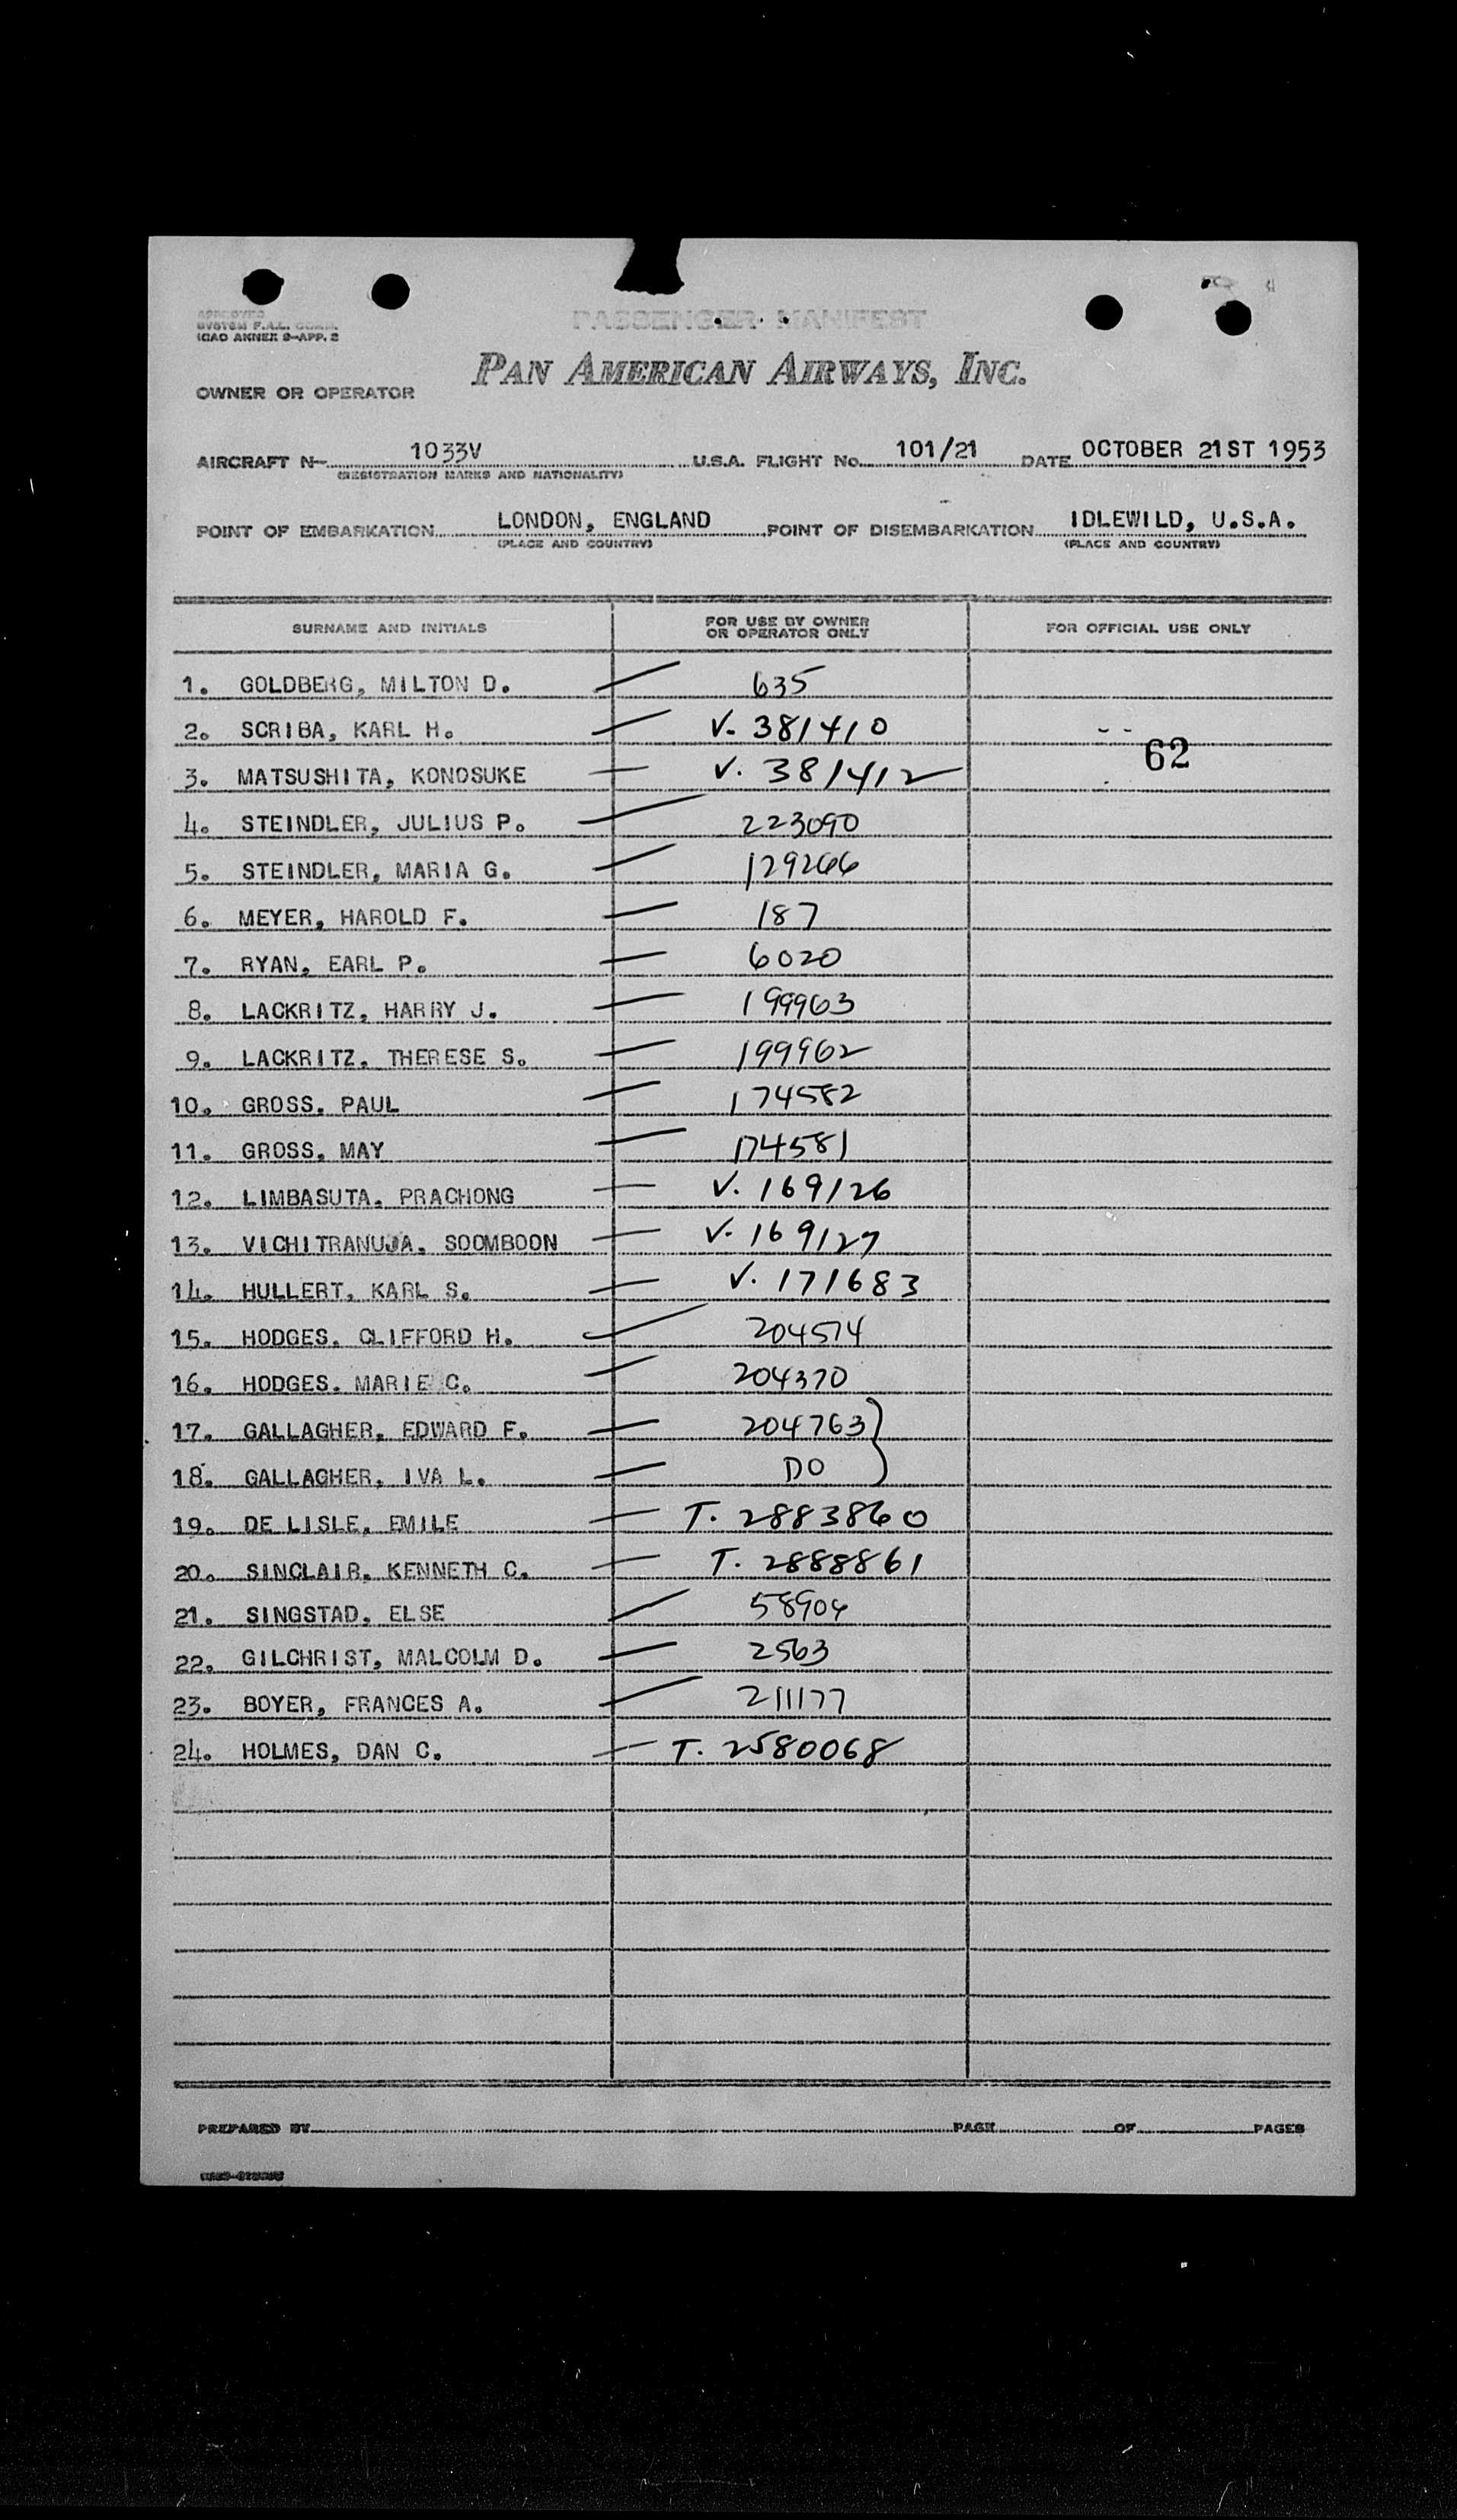 APPROVED
SYSTEM F.A.L. COMM.
ICAO ANNEX 9-APP. 2
PASSENGER MANIFEST
PAN AMERICAN AIRWAYS, INC.
OWNER OR OPERATOR
AIRCRAFT N- 1033V U.S.A. FLIGHT No. 101/21 DATE OCTOBER 21ST 1953
(REGISTRATION MARKS AND NATIONALITY)
POINT OF EMBARKATION LONDON, ENGLAND POINT OF DISEMBARKATION IDLEWILD, U.S.A.
(PLACE AND COUNTRY) (PLACE AND COUNTRY)
SURNAME AND INITIALS FOR USE BY OWNER OR OPERATOR ONLY FOR OFFICIAL USE ONLY
1. GOLDBERG, MILTON D. 635
2. SCRIBA, KARL H. V. 381410
62
3. MATSUSHITA, KONOSUKE V. 381412
4. STEINDLER, JULIUS P. 223090
5. STEINDLER, MARIA G. 129266
6. MEYER, HAROLD F. 187
7. RYAN, EARL P. 6020
8. LACKRITZ, HARRY J. 199963
9. LACKRITZ, THERESE S. 199962
10. GROSS, PAUL 174582
11. GROSS, MAY 174581
12. LIMBASUTA, PRACHONG V. 169126
13. VICHITRANUJA, SOOMBOON V. 169127
14. HULLERT, KARL S. V. 171683
15. HODGES, CLIFFORD H. 204574
16. HODGES, MARIE C. 204370
17. GALLAGHER, EDWARD F. 204763
18. GALLAGHER, IVA L. DO
19. DE LISLE, EMILE T. 2883860
20. SINCLAIR, KENNETH C. T. 2888861
21. SINGSTAD, ELSE 58904
22. GILCHRIST, MALCOLM D. 2563
23. BOYER, FRANCES A. 211177
24. HOLMES, DAN C. T. 2580068
PREPARED BY PAGE OF PAGES